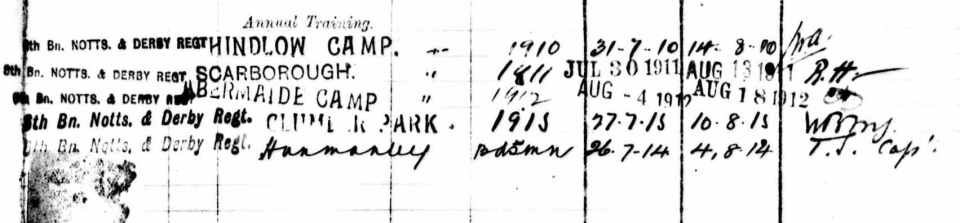 Annual Training.
8th Bn. NOTTS. & DERBY REGT HINDLOW CAMP. " 1910 31-7-10 14-8-10
8th Bn. NOTTS. & DERBY REGT SCARBOROUGH. " 1911 JUL 30 1911 AUG 13 1911 R.H.
8th Bn. NOTTS. & DERBY REGT ABERMAIDE CAMP " 1912 AUG -4 1912 AUG 18 1912
8th Bn. Notts. & Derby Regt. CLUMBER PARK. 1913 27-7-13 10-8-13
8th Bn. Notts. & Derby Regt. Hunmanby Bdsmn 26-7-14 4,8-14 Cap'.